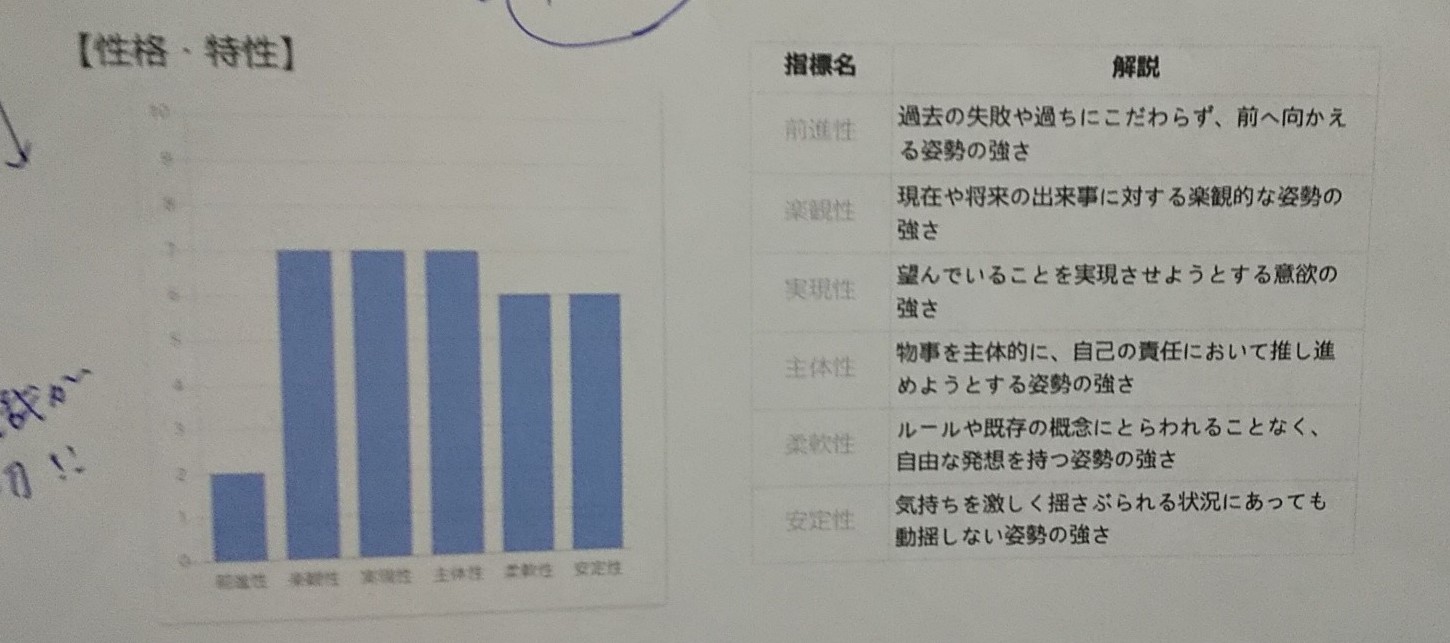 【性格・特性】
10
9
8
7
6
5
4
3
2
1
0
前進性 楽観性 実現性 主体性 柔軟性 安定性
指標名 解説
前進性 過去の失敗や過ちにこだわらず、前へ向かえ
る姿勢の強さ
楽観性 現在や将来の出来事に対する楽観的な姿勢の
強さ
実現性 望んでいることを実現させようとする意欲の
強さ
主体性 物事を主体的に、自己の責任において推し進
めようとする姿勢の強さ
柔軟性 ルールや既存の概念にとらわれることなく、
自由な発想を持つ姿勢の強さ
安定性 気持ちを激しく揺さぶられる状況にあっても
動揺しない姿勢の強さ